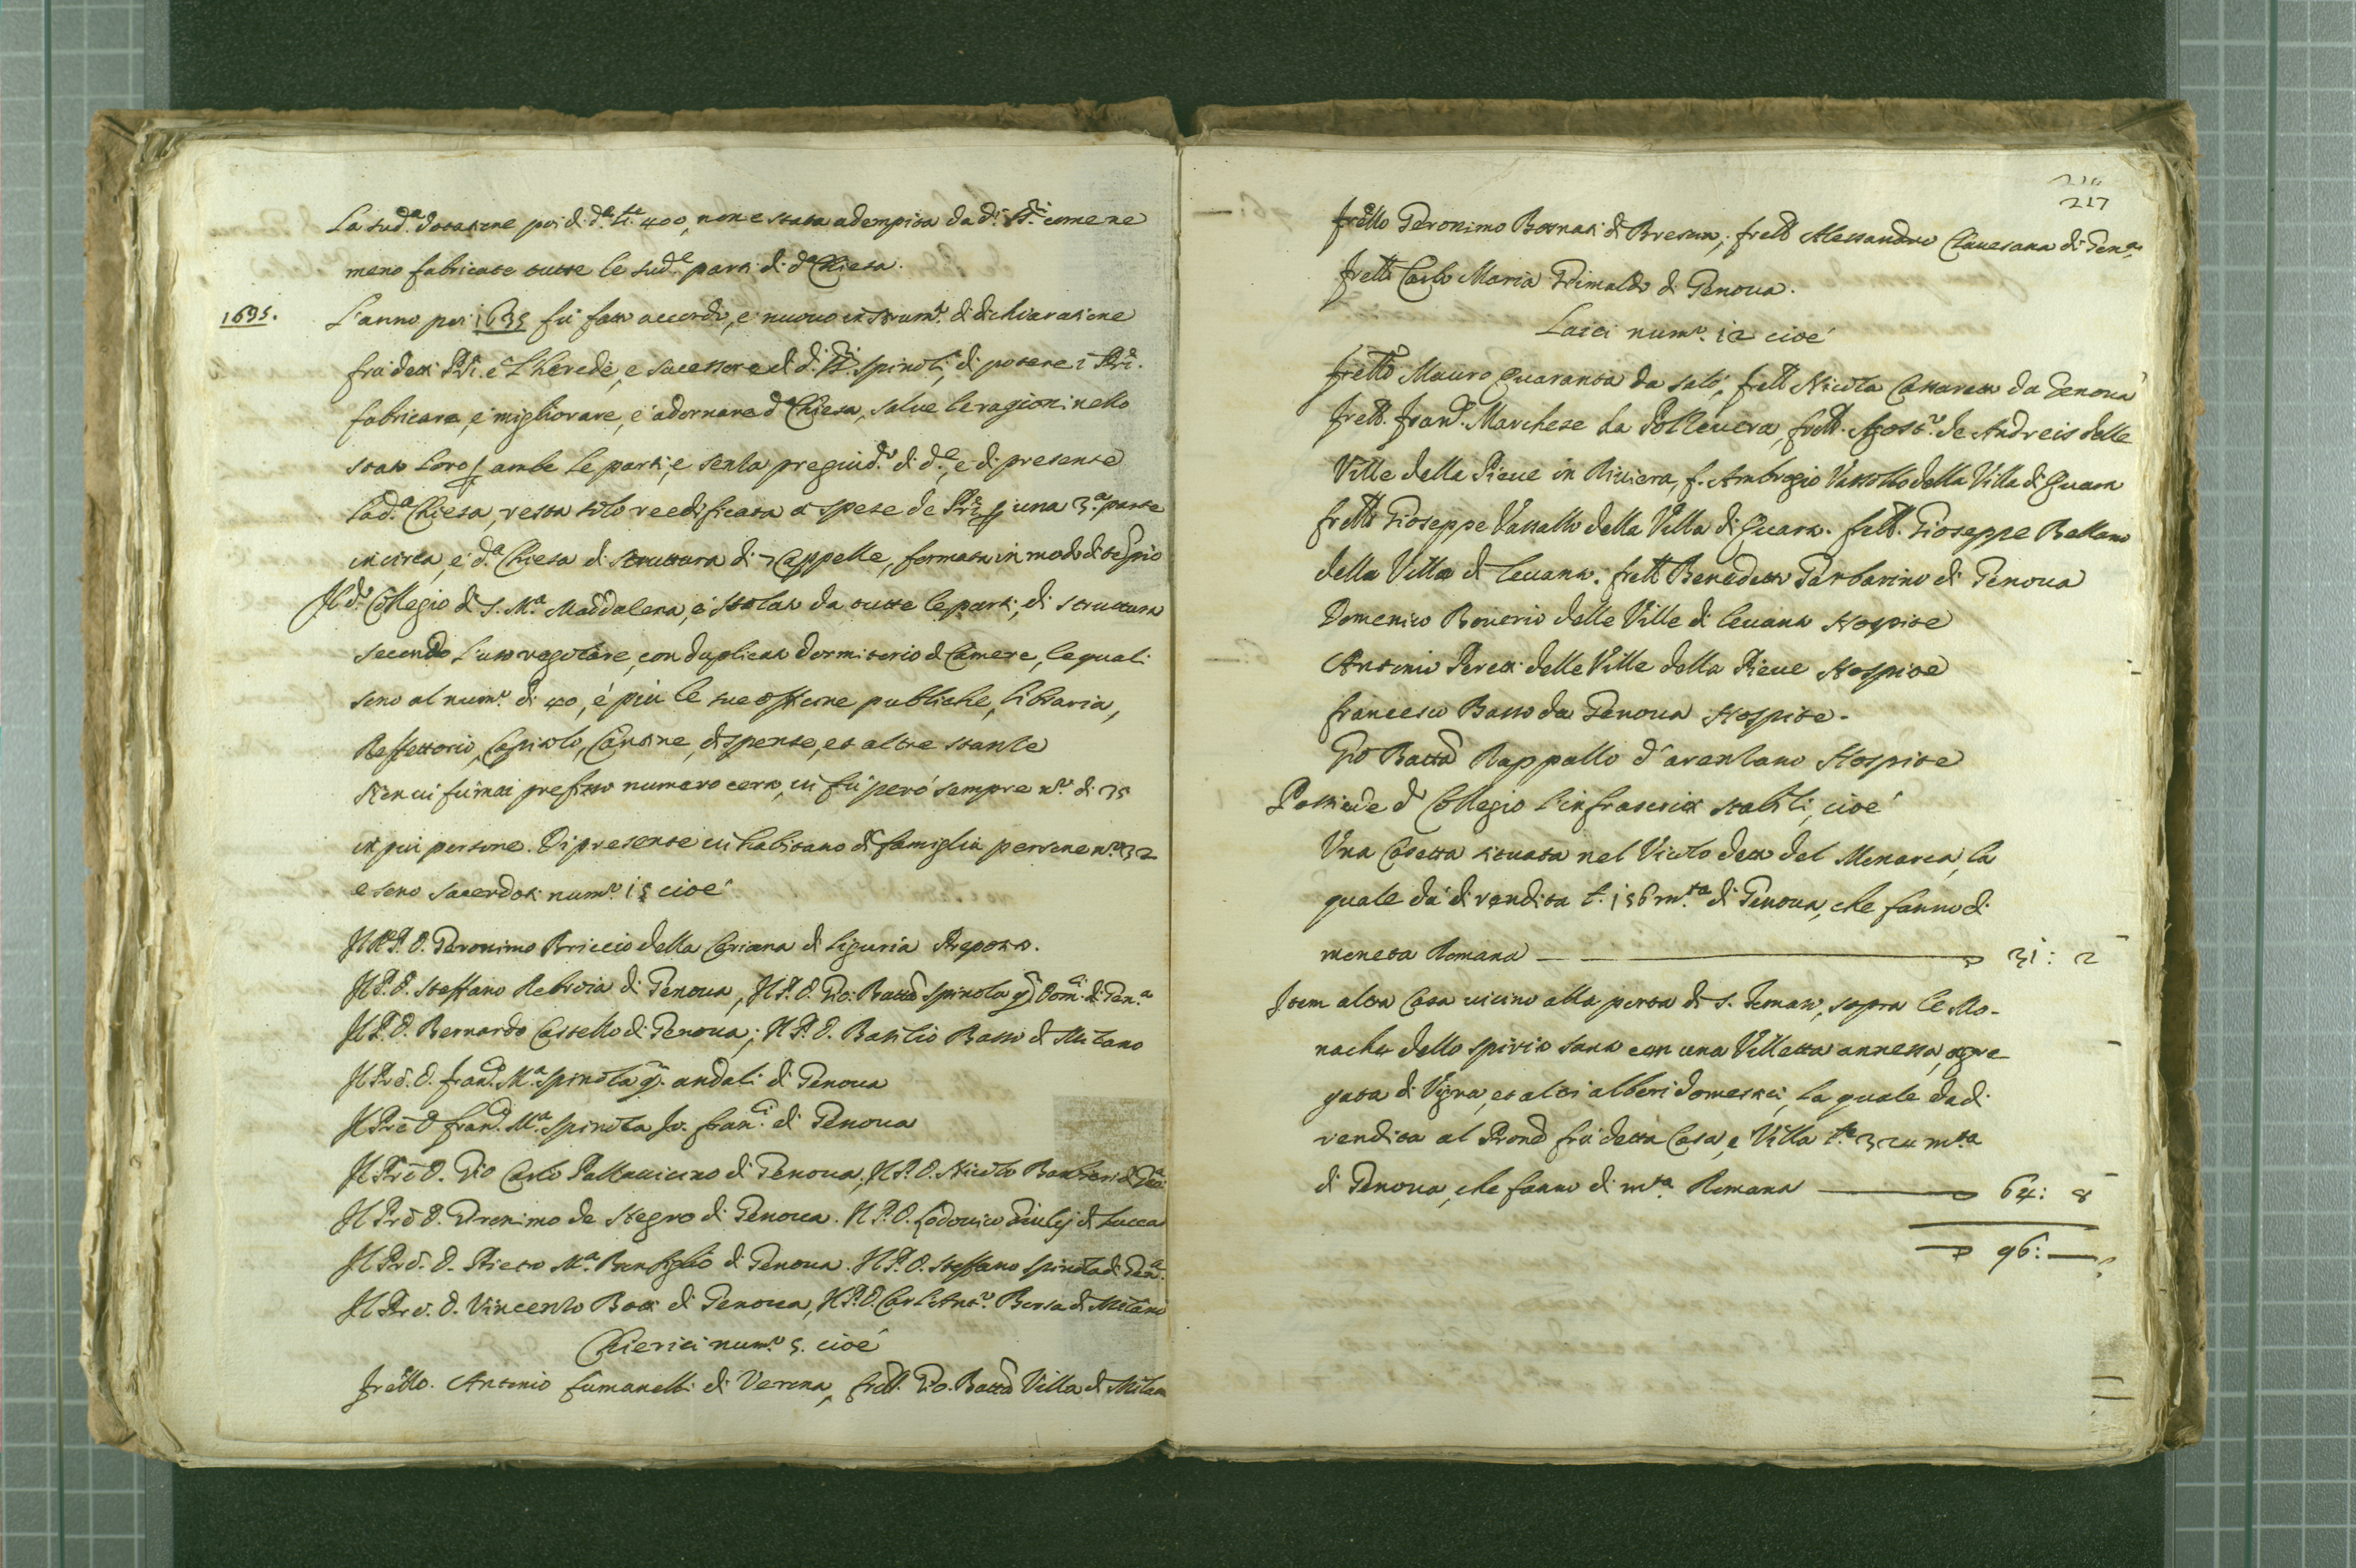 La sud.a dotatione poi di d.a £.e 400, non e stata adempita da d.i SS.ri come ne
meno fabricate tutte le sud.e parti di d.a Chiesa.
1635. L'anno poi 1635 fú fatto accordo, e nuovo instrum.to di dichiaratione
frà detti PP.ri e L'herede, e sucessore di d.i SS.ri Spinoli, di potere i PP.ri
fabricare, e migliorare, e adornare d.a Chiesa, salve le ragioni nello
stato loro p ambe le parti, e senza pregiud.o di d.e, e di presente
la d.a Chiesa, resta solo reedificata à spese de PP.ri p una 3.a parte
in circa, e d.a Chiesa di struttura di 7 Cappelle, formata in modo di tempio
Il d.o Collegio di S. M.a Maddalena, é Isolato da tutte le parti, di struttura
secondo l'uso regolare, con duplicato dormitorio di Camere, le quali
sono al num.o di 40, é più le sue officine publiche, libraria,
Reffettorio, Capitolo, Cantine, dispense, et altre stanze
Non vi fú mai prefisso numero certo, vi fú peró sempre n.o di 25
in piu persone. Di presente vi habitano di famiglia persone n.o 32
e sono sacerdoti num.o 15 cioé
Il M.R.P. D. Geronimo Briccio della Ceriana di Liguria Preposito.
Il P. D. Steffano Rebroia di Genova, Il P. D. Gio: Batta Spinola q. Dom.ci di Gen.a
Il P. D. Bernardo Castello di Genova; Il P. D. Basilio Basso di Milano
Il Prē. D. Fran.co M.a Spinola q. andali di Genova
Il Prē D Fran.co M.a Spinola Jo. fran.ci di Genova
Il Prē D. Gio Carlo Pallavicino di Genova, Il P. D. Nicolo Barberi di Gen.a
Il Prē D. Gironimo de Negro di Genova. Il P. D. Lodovico Giulij di Lucca
Il Prē. D. Pietro M.a Bonfiglio di Genova. Il P. D. Steffano Spinola di Gen.a
Il Prē. D. Vincenzo Bossi di Genova, Il P. D. Carl'Ant.o Borsa di Milano
Chierici num.o 5. cioé
fretto. Antonio fumanelli di Verona, frett. Gio. Batta Villa di Milano
217
fretto Geronimo Bornati di Brescia, frett Alessandro Clavesana di Gen.a
frett Carlo Maria Grimaldo di Genova.
Laici num.o 12 cioé
fretto Mauro Quaranta da Saló, frett Nicola Cassaretto da Genova
frett. fran.co Marchese da Polcevera, frett. Agost.o de Andreis delle
Ville della Pieve in Riviera, f. Ambrogio Vassallo della Villa di Guara
frett Gioseppe Vassallo della Villa di Guara. frett. Gioseppe Bellano
della Villa di Levana. frett Benedetto Garbarino di Genova
Domenico Roverio delle Ville di Levana Hospite
Antonio Peretti delle Ville della Pieve Hospite
francesco Basso da Genova Hospite.
Gio Batta Rappallo d'aventano Hospite
Possiede d.o Collegio l'infrascritti stabili, cioé
Una Casetta situata nel Vicolo detto del Monarca, la
quale dá di rendita £. 156 m.ta di Genova, che fanno di
moneta Romana 31: 2
Item altra Casa vicino alla porta di S. Tomaso, sopra le Mo-
nache dello Spirito Santo con una Villetta annessa, agre
gata di Vigna, et altri alberi domestici, la quale dá di
rendita al Prond frá detta Casa, e Villa £.e 324 m.ta
di Genova, che fanno di m.ta Romana 64: 8
96: —